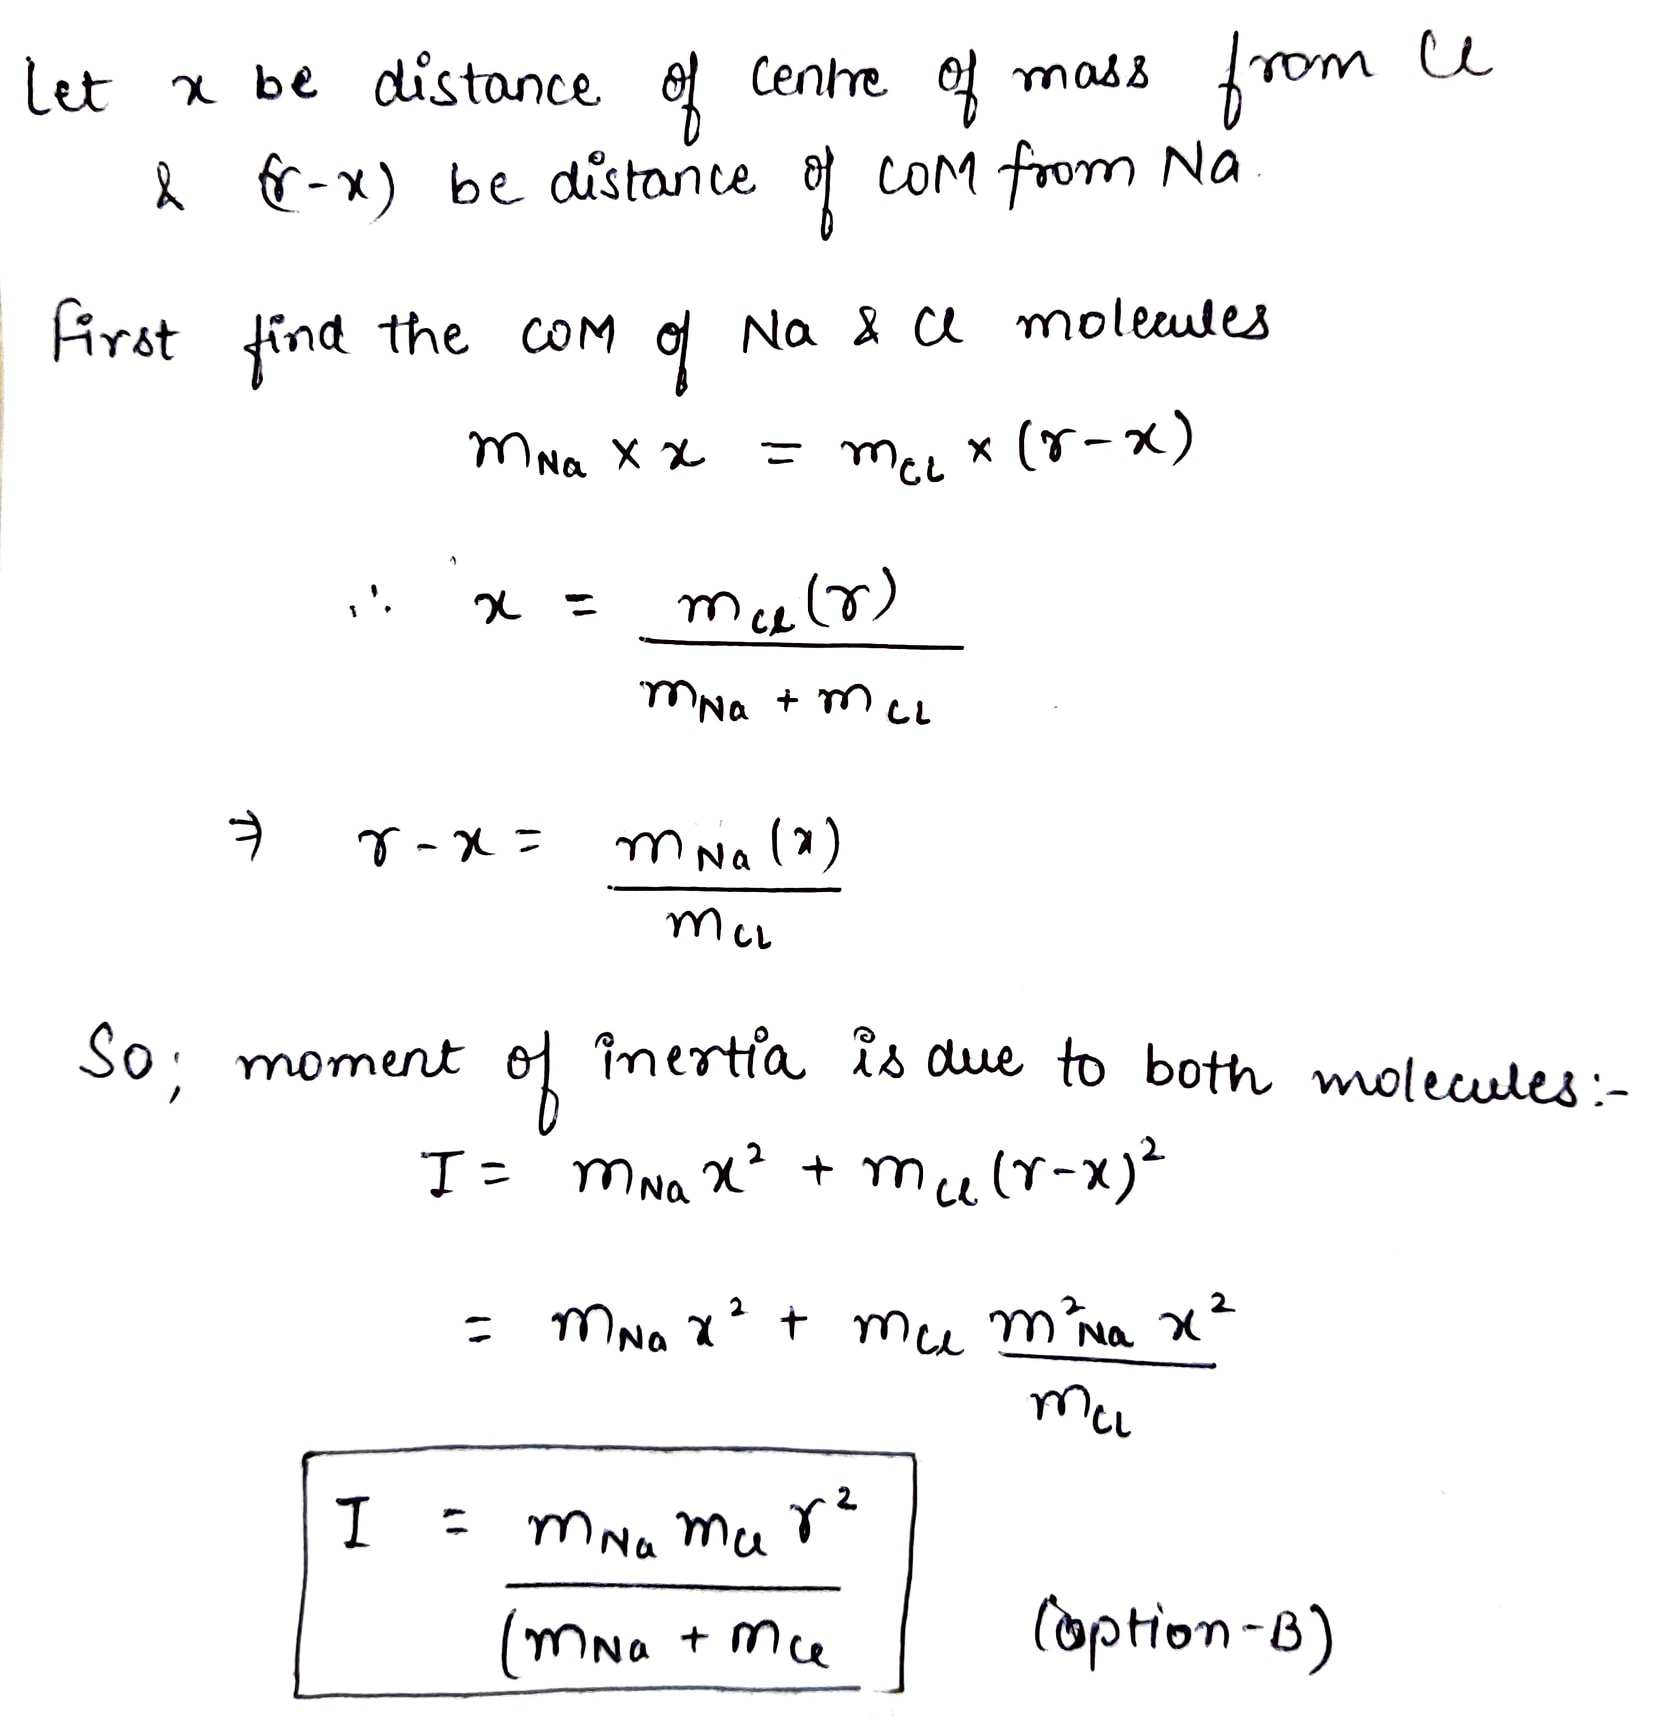 Let x be distance of Centre of mass from Cl
& (r-x) be distance of COM from Na.
first find the COM of Na & Cl molecules
mNa × x = mCL × (r-x)
∴ x = mCl(r)
mNa + mCL
⇒ r-x = mNa(x)
mCL
So; moment of inertia is due to both molecules:-
I = mNa x² + mCl (r-x)²
= mNa x² + mCl m²Na x²
mCL
I = mNa mCl r²
(mNa + mCl
(option-B)